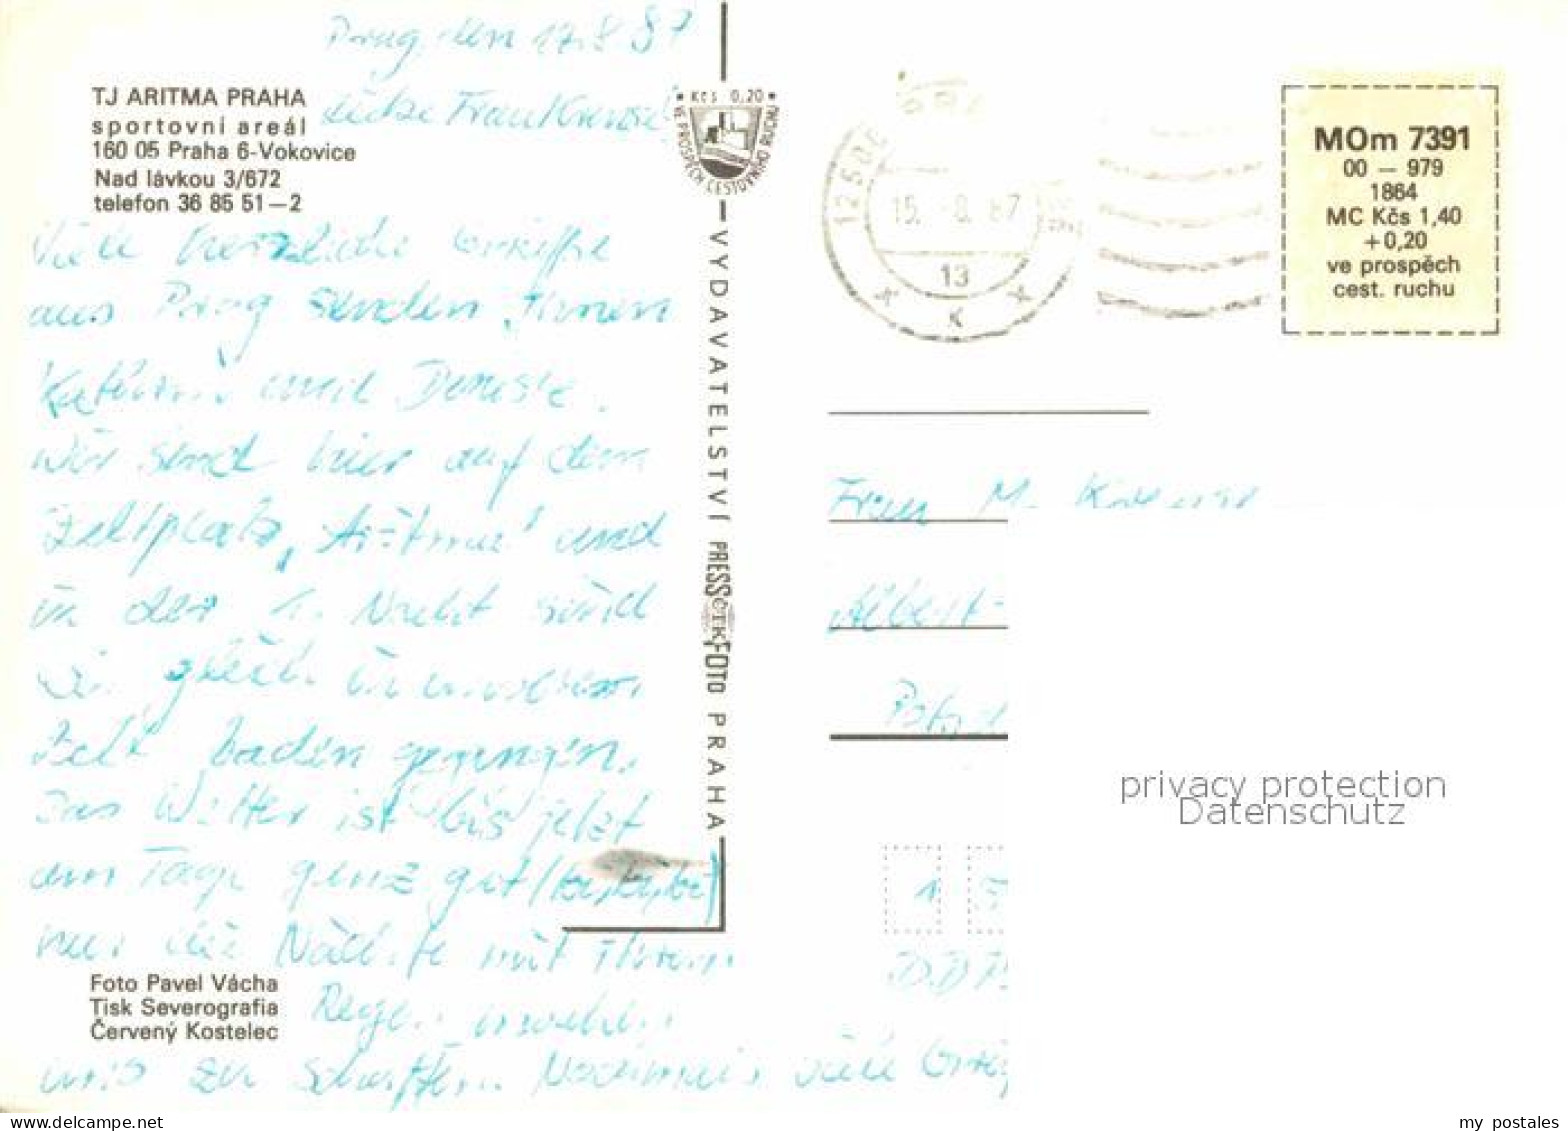 Prag, den 17.8.87
TJ ARITMA PRAHA
sportovní areál
160 05 Praha 6-Vokovice
Nad lávkou 3/672
telefon 36 85 51–2
Liebe Frau
Viele herzliche Grüße
aus Prag senden Ihnen
und Denise.
Wir sind hier auf dem
Zeltplatz „Aritma" und
in der 1. Nacht sind
wir gleich in unserem
Zelt baden gegangen.
Das Wetter ist bis jetzt
am Tage ganz gut
nur die Nächte mit Ihrem
Regen machen
uns zu schaffen. Nochmals viele Grüße
Foto Pavel Vácha
Tisk Severografia
Červený Kostelec
• Kčs 0,20 •
VE PROSPĚCH CESTOVNÍHO RUCHU
VYDAVATELSTVÍ PRESSFOTO PRAHA
ČTK
15. -8. 87
13
K
MOm 7391
00 — 979
1864
MC Kčs 1,40
+ 0,20
ve prospěch
cest. ruchu
Frau M.
Albert-
1
DDR
privacy protection
Datenschutz
my postales